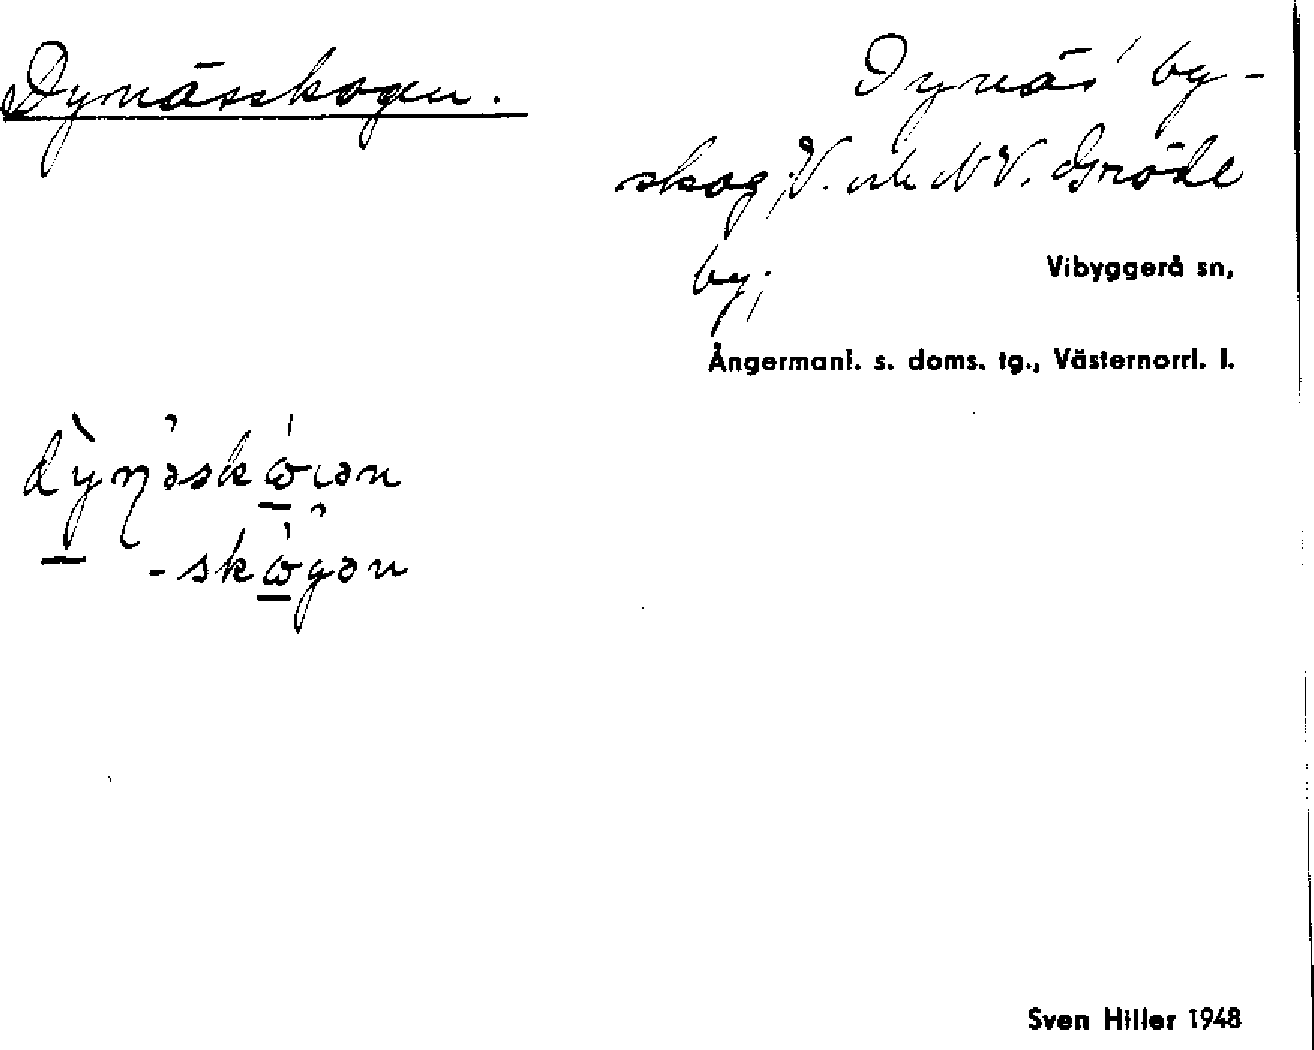 Dynässkogen.
Dynäs' by-
skog, V. och NV. Gröde
by;
Vibyggerå sn,
Ångermanl. s. doms. tg., Västernorrl. l.
-skωgən
Sven Hiller 1948